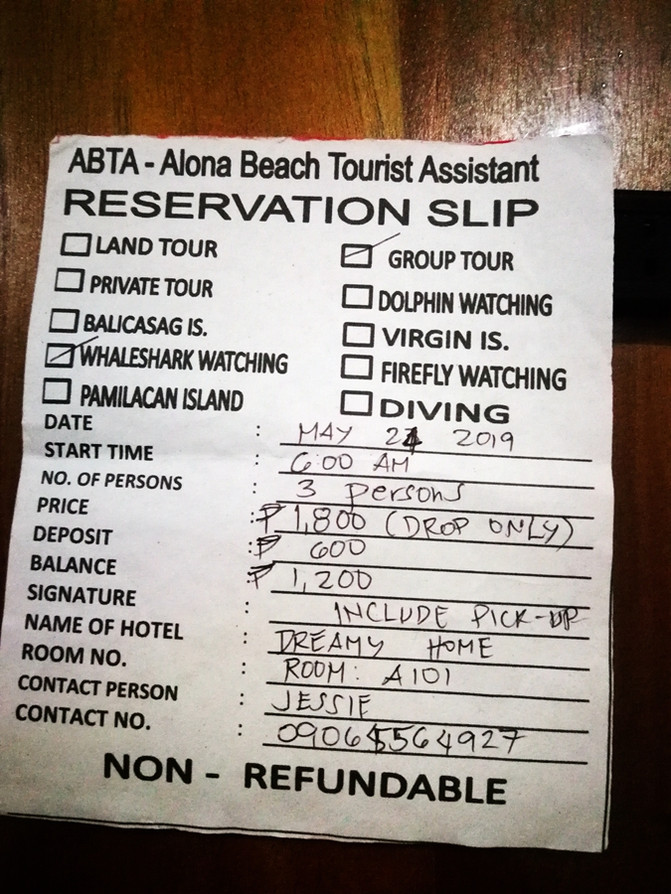 ABTA - Alona Beach Tourist Assistant
RESERVATION SLIP
LAND TOUR
GROUP TOUR
PRIVATE TOUR
DOLPHIN WATCHING
BALICASAG IS.
VIRGIN IS.
WHALESHARK WATCHING
FIREFLY WATCHING
PAMILACAN ISLAND
DIVING
DATE : MAY 2 2019
START TIME : 6:00 AM
NO. OF PERSONS : 3 persons
PRICE : ₱ 1,800 (DROP ONLY)
DEPOSIT : ₱ 600
BALANCE : ₱ 1,200
SIGNATURE : INCLUDE PICK-UP
NAME OF HOTEL : DREAMY HOME
ROOM NO. : ROOM: A101
CONTACT PERSON : JESSIE
CONTACT NO. : 090645564927
NON - REFUNDABLE